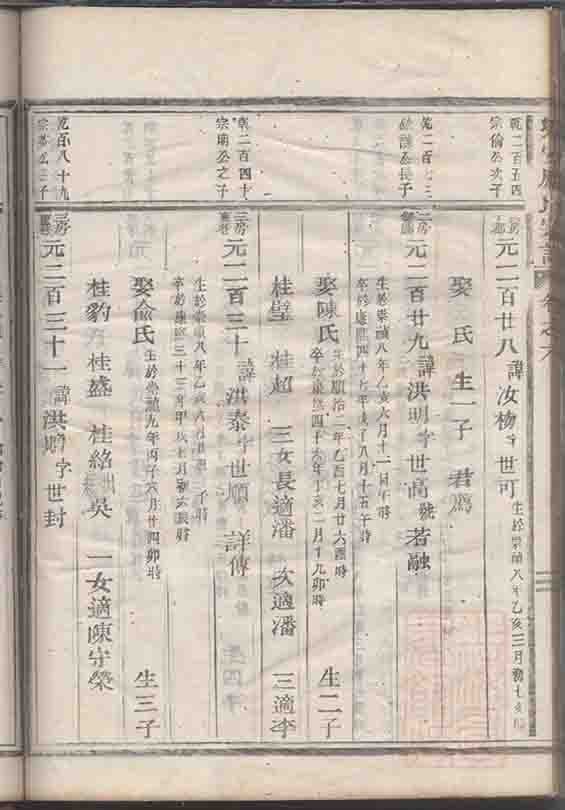 乾二百五四
宗倫公次子
房
元二百廿八 諱汝楊字世可 生於崇禎八年乙亥三月初七亥時
娶 氏 生一子 君爲
乾二百七三
公長子
二房
元二百廿九 諱洪明字世高號若融
生於崇禎八年乙亥六月十二日午時
卒於康熙四十七年戊子八月十五午時
娶陳氏 生於順治二年乙酉七月廿六酉時 生二子
卒於康熙四十六年丁亥二月十九卯時
桂璧 桂超 三女長適潘 次適潘 三適李
乾二百四十
宗瑞公之子
三房
元二百三十 諱洪泰字世順 詳傳
生於崇禎八年乙亥六月 子時
卒於康熙三十三年甲戌七月初六辰時
娶俞氏 生於崇禎九年丙子六月廿四卯時 生三子
桂豹 桂盛 桂絡 一女適陳守榮
乾百八十九
宗 公三子
三房
元二百三十一 諱洪 字世封